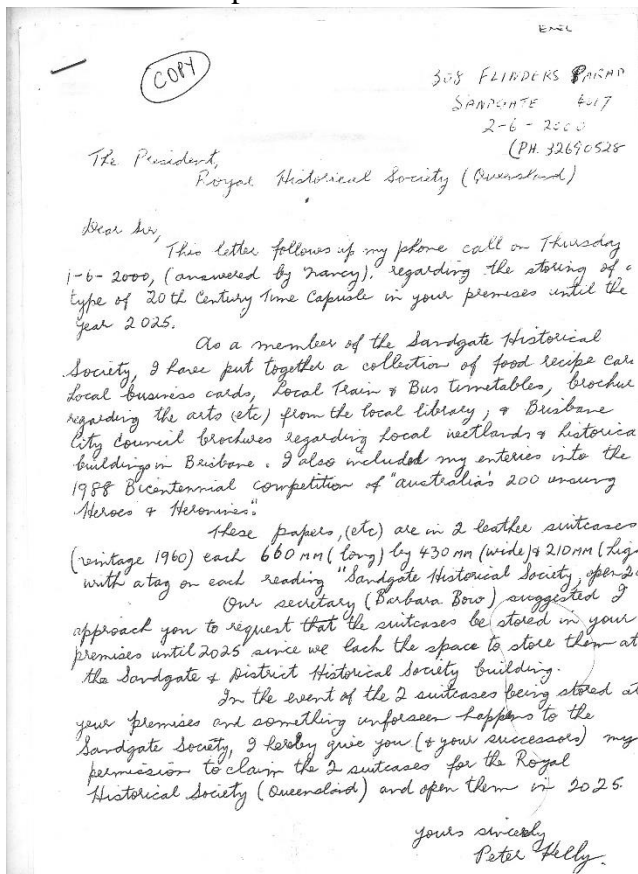 ENCL
COPY
308 FLINDERS PARAD
SANDGATE 4017
2-6-2000
(PH. 32690528
The President,
Royal Historical Society (Queensland)
Dear Sir,
This letter follows up my phone call on Thursday
1-6-2000, (answered by Nancy), regarding the storing of a
type of 20th Century Time Capisle in your premises until the
year 2025.
As a member of the Sandgate Historical
Society, I have put together a collection of food recipe car
Local business cards, Local Train & Bus timetables, brochur
regarding the arts (etc) from the local library, & Brisbane
City Council brochures regarding Local wetlands & historica
buildings in Brisbane. I also included my enteries into the
1988 Bicentennial competition of "Australia's 200 unsung
Heroes & Heroines".
These papers, (etc) are in 2 leather suitcases
(vintage 1960) each 660 MM (long) by 430 MM (wide) & 210MM (hig
with a tag on each reading "Sandgate Historical Society, open 20
Our secretary (Barbara Bow) suggested I
approach you to request that the suitcases be stored in your
premises until 2025 since we lack the space to store them at
the Sandgate & District Historical Society building.
In the event of the 2 suitcases being stored at
your premises and something unforseen happens to the
Sandgate Society, I hereby give you (& your successors) my
permission to claim the 2 suitcases for the Royal
Historical Society (Queensland) and open them in 2025.
yours sincerely
Peter Kelly.